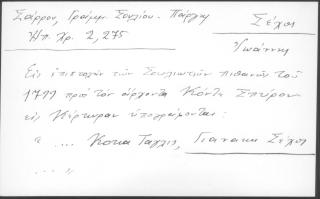 Σάρρου, Γραμμ. Σουλίου - Πάργης
Ἠπ. Χρ. 2, 275
Σέχος
Ἰωάννης
Εἰς ἐπιστολὴν τῶν Σουλιωτῶν πιθανῶς τοῦ
1799 πρὸς τὸν ἄρχοντα Κόντε Σπύρον
εἰς Κέρκυραν ὑπογράφονται:
" ... Κοτζα Ταχλις, Γιανακι Σέχος
... "